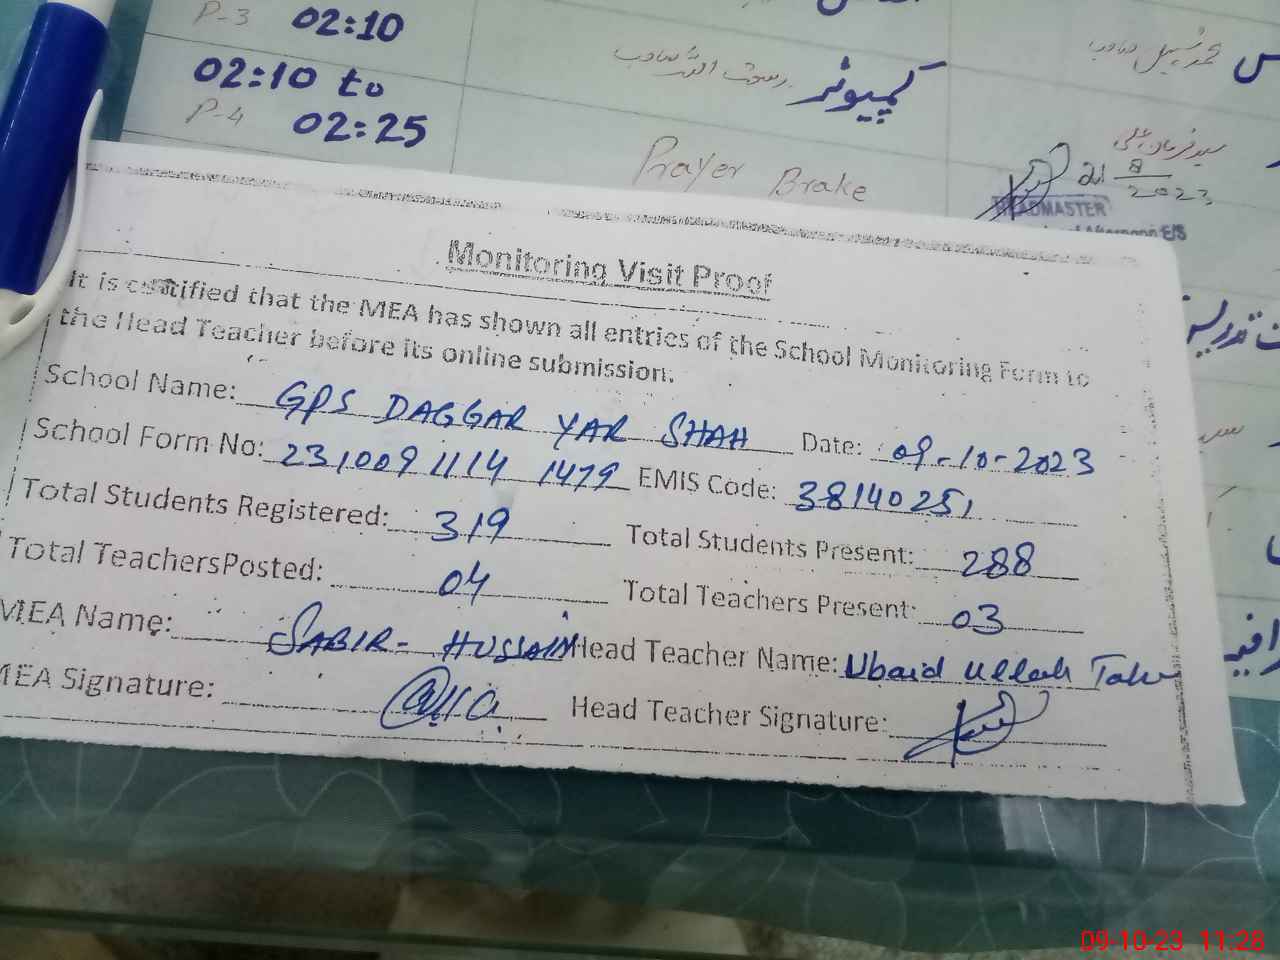 P-3 02:10
02:10 to
P-4 02:25
کمپیوٹر
Prayer Brake
21 8 2023
HEADMASTER
Afternoon E/S
Monitoring Visit Proof
It is certified that the MEA has shown all entries of the School Monitoring Form to
the Head Teacher before its online submission.
School Name: GPS DAGGAR YAR SHAH Date: 09-10-2023
School Form No: 231009 1114 1479 EMIS Code: 38140251
Total Students Registered: 319 Total Students Present: 288
Total TeachersPosted: 04 Total Teachers Present: 03
MEA Name: SABIR-HUSSAIN Head Teacher Name: Ubaid Ullah
MEA Signature: Head Teacher Signature:
09-10-23 11:28